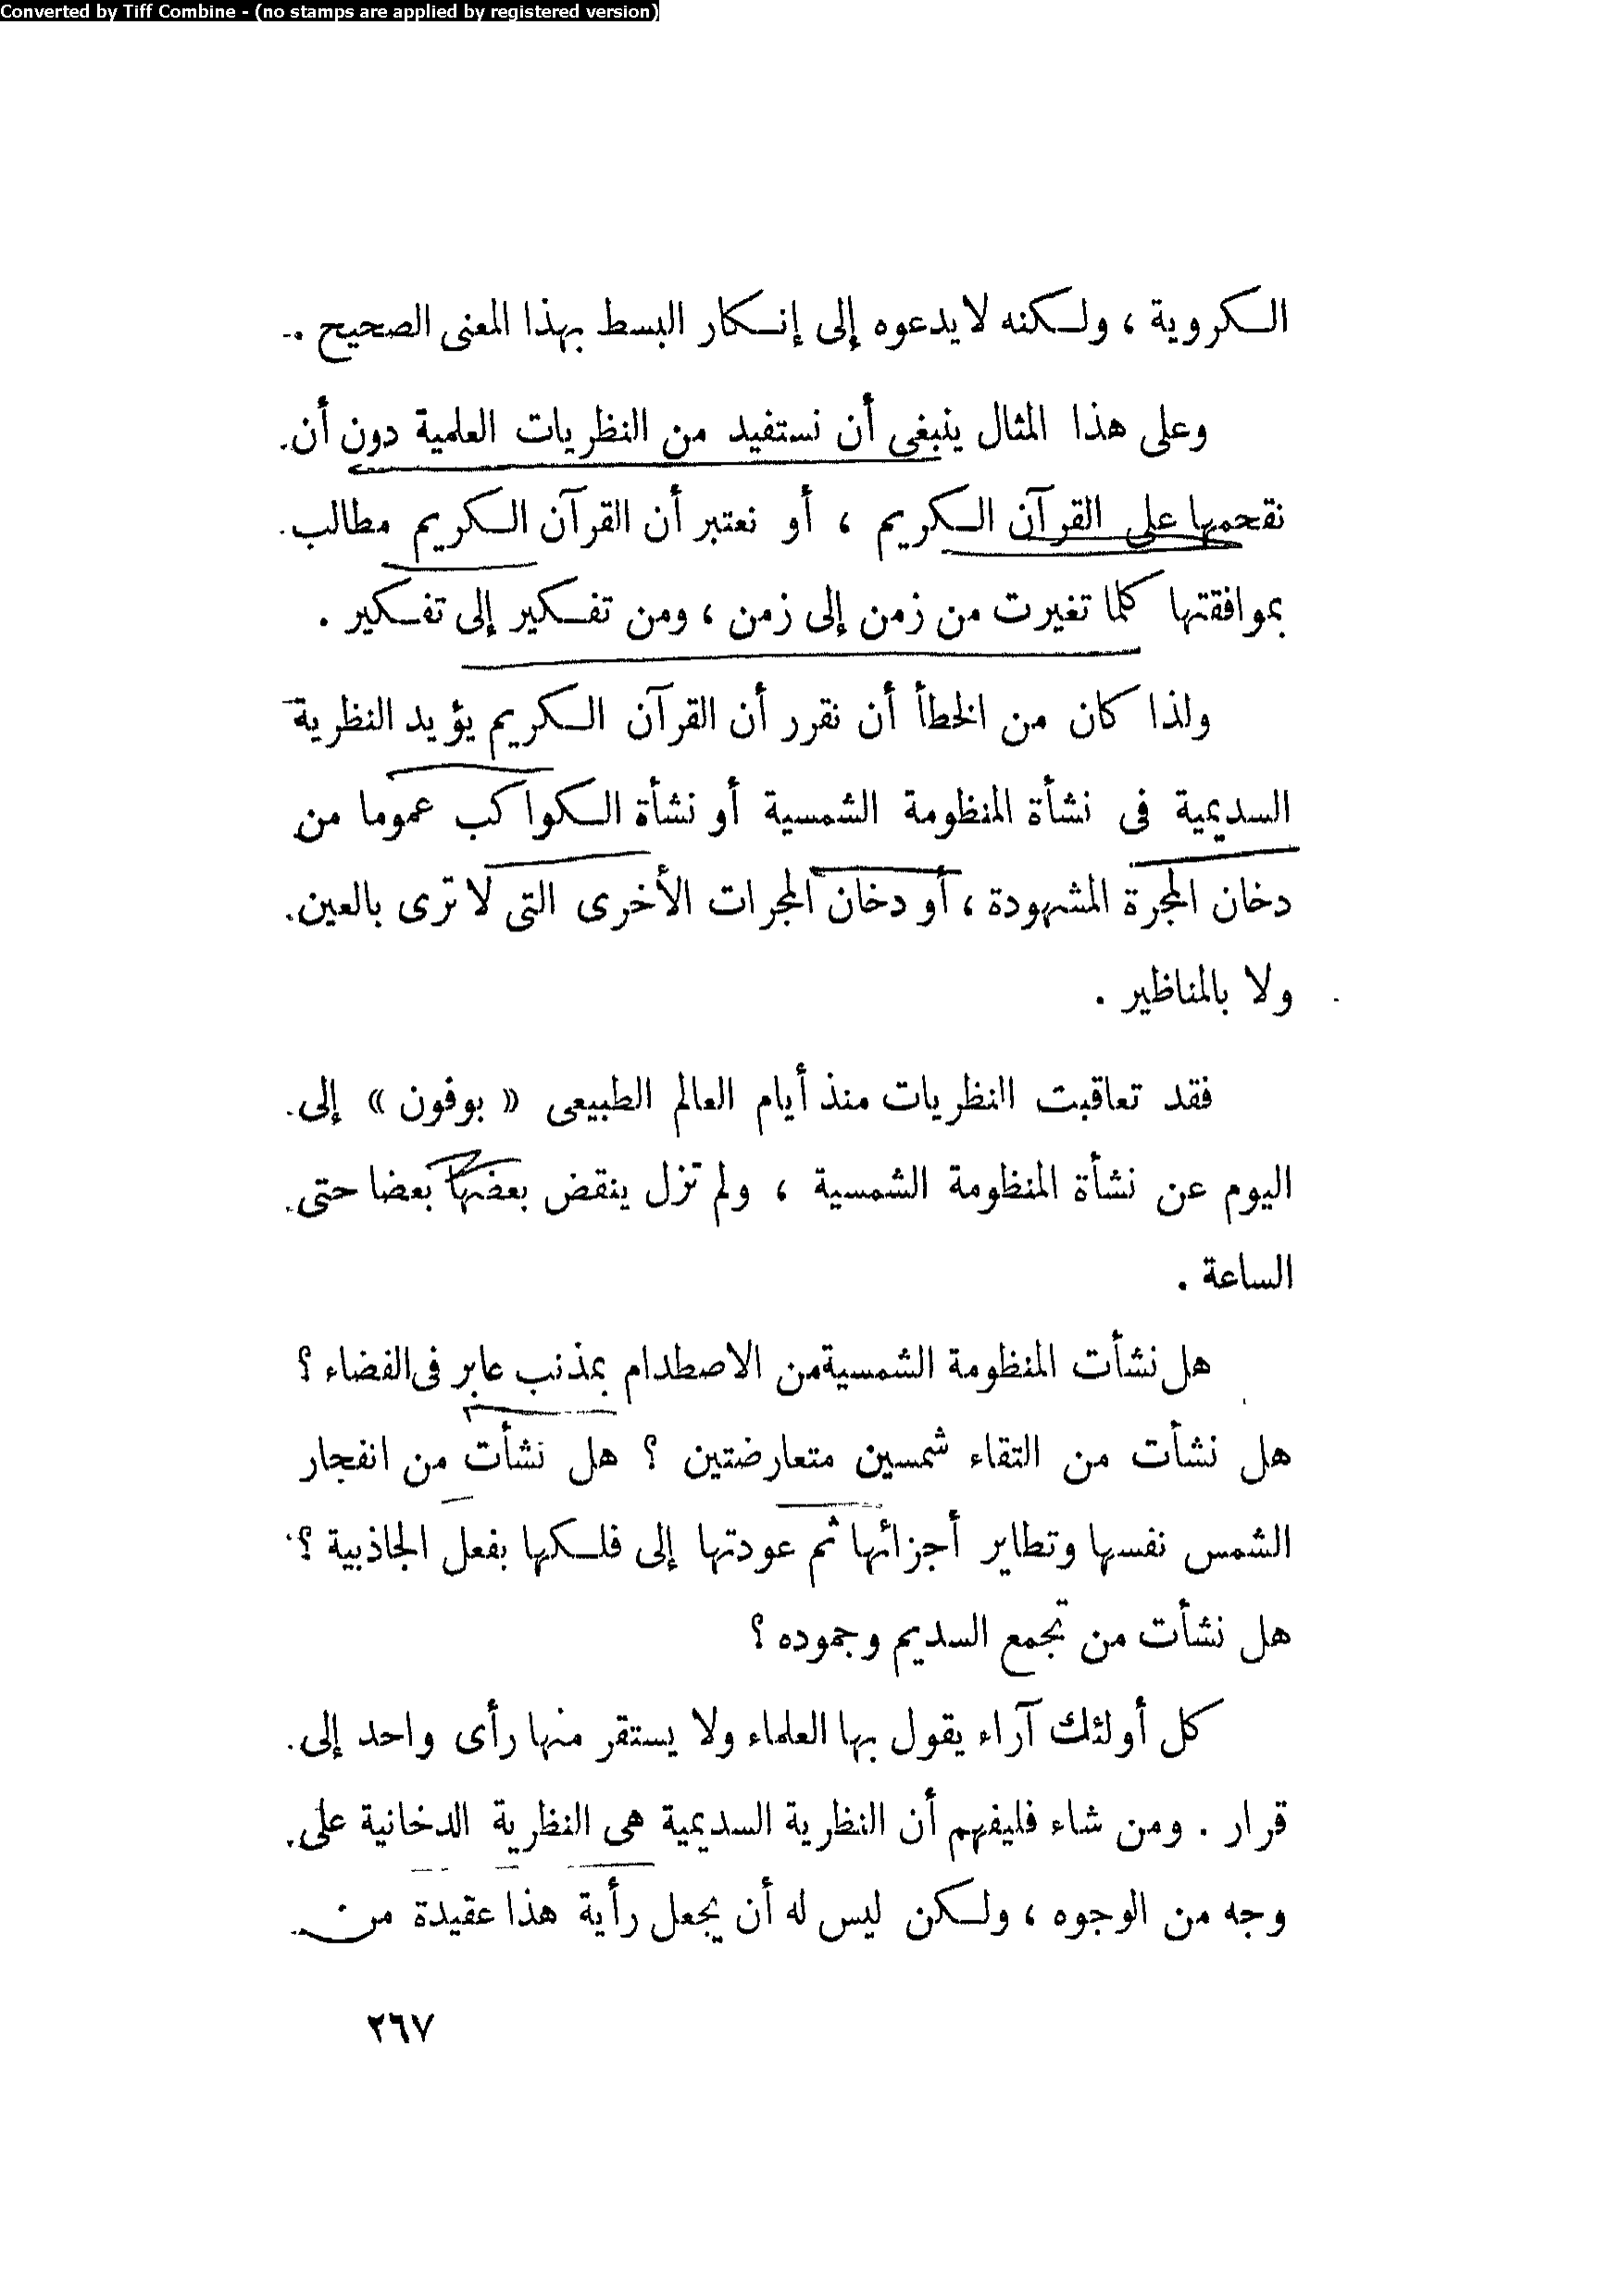 Converted by Tiff Combine - (no stamps are applied by registered version)
الكروية ، ولكنه لا يدعوه إلى إنكار البسط بهذا المعنى الصحيح .
وعلى هذا المثال ينبغى أن نستفيد من النظريات العلمية دون أن
نقحمها على القرآن الكريم ، أو نعتبر أن القرآن الكريم مطالب
بموافقتها كلما تغيرت من زمن إلى زمن ، ومن تفكير إلى تفكير .
ولذا كان من الخطأ أن نقرر أن القرآن الكريم يؤيد النظرية
السديمية فى نشأة المنظومة الشمسية أو نشأة الكواكب عموما من
دخان المجرة المشهودة ، أو دخان المجرات الأخرى التى لا ترى بالعين
ولا بالمناظير .
فقد تعاقبت النظريات منذ أيام العالم الطبيعى « بوفون » إلى
اليوم عن نشأة المنظومة الشمسية ، ولم تزل ينقض بعضها بعضا حتى
الساعة .
هل نشأت المنظومة الشمسية من الاصطدام بمذنب عابر فى الفضاء ؟
هل نشأت من التقاء شمسين متعارضتين ؟ هل نشأت من انفجار
الشمس نفسها وتطاير أجزائها ثم عودتها إلى فلكها بفعل الجاذبية ؟
هل نشأت من تجمع السديم وجموده ؟
كل أولئك آراء يقول بها العلماء ولا يستقر منها رأى واحد إلى
قرار . ومن شاء فليفهم أن النظرية السديمية هى النظرية الدخانية على
وجه من الوجوه ، ولكن ليس له أن يجعل رأية هذا عقيدة من
٢٦٧